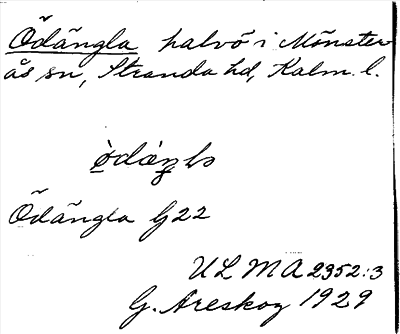 Ödängla halvö i Mönster
ås sn, Stranda hd, Kalm. l.
Ödängla G22
ULMA 2352:3
G. Areskog 1929